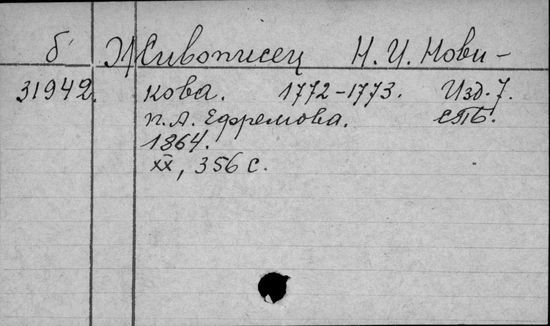 б Живописец Н. И. Нови-
31942. кова. 1772-1773. Изд. 7.
П. А. Ефремова. СПБ.
1864.
XX, 356 с.